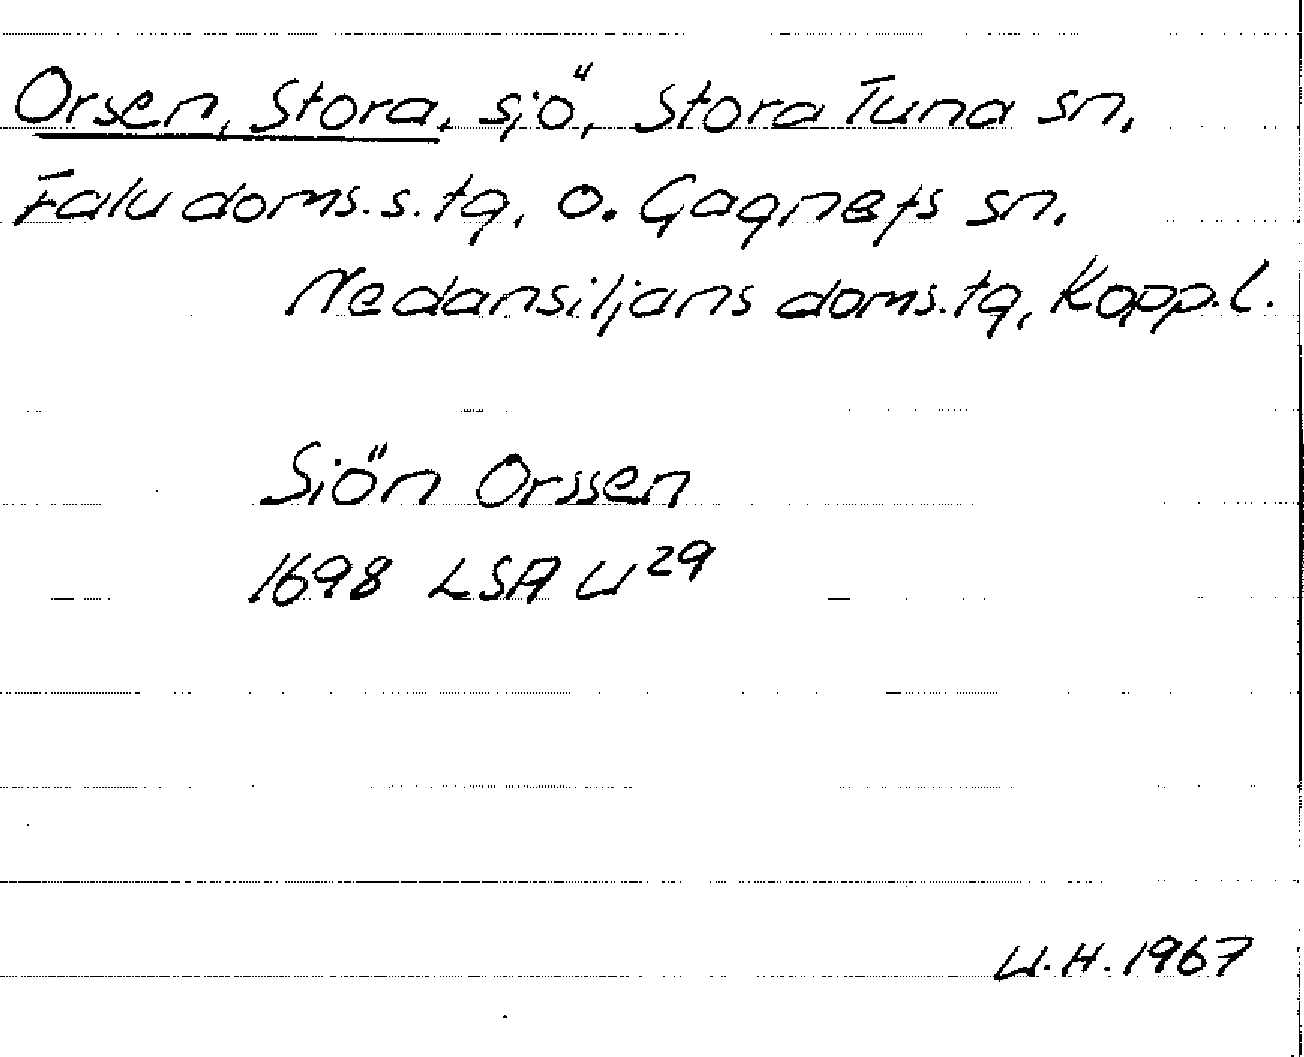 Orsen, Stora, sjö, Stora Tuna sn,
Falu doms.s.tg, o. Gagnefs sn.
Nedansiljans doms.tg, Kopp.l.
Siön Orssen
1698 LSA U 29
U.H. 1967